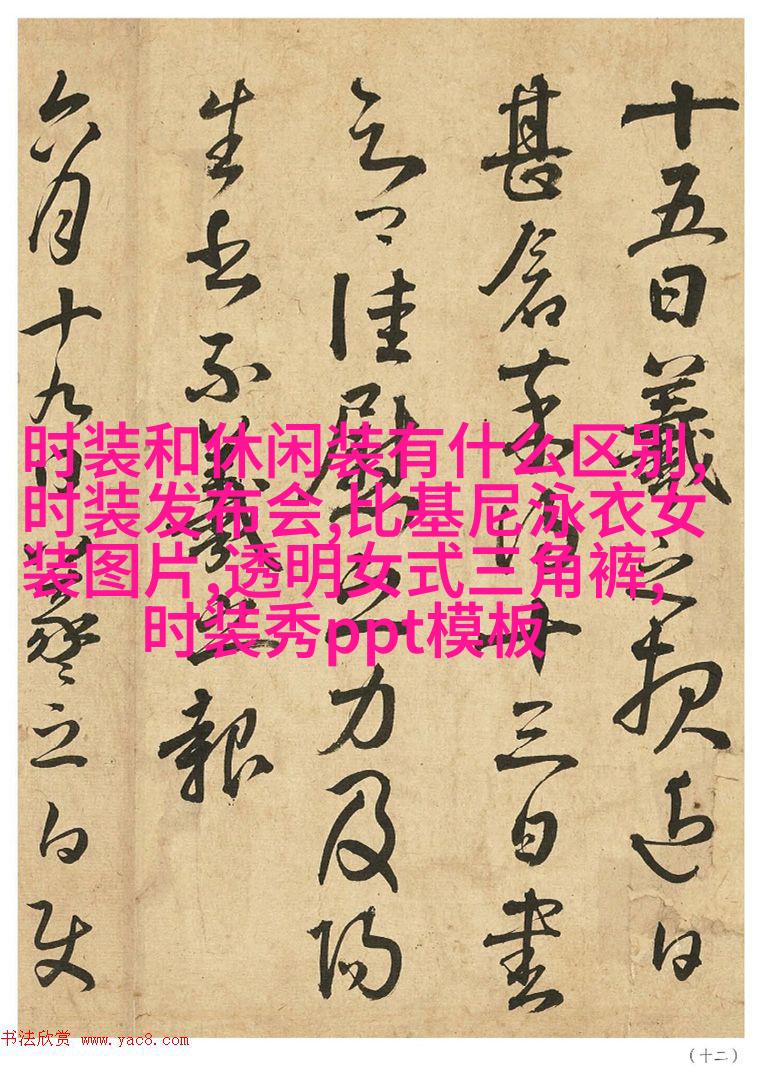 十五日羲之頓近日
甚念十三日書
佳慰力及陽
生不羲之報
六月十九日羲之白使
时装和休闲装有什么区别,
时装发布会,比基尼泳衣女
装图片,透明女式三角裤,
时装秀ppt模板
书法欣赏 www.yac8.com
（十二）